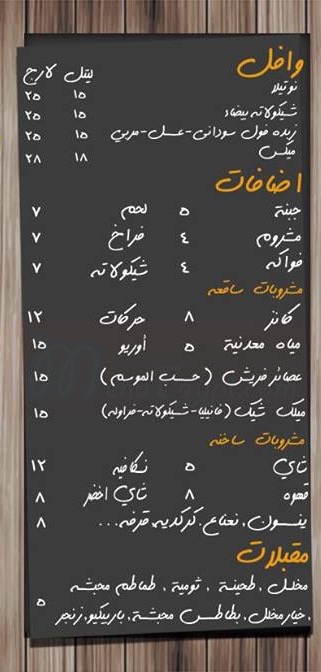 وافل
ليتل لارج
نوتيلا ١٥ ٢٥
شيكولاته بيضاء ١٥ ٢٥
زبده فول سودانى-عسل-مربي ١٥ ٢٥
ميكس ١٨ ٢٨
اضافات
جبنة ٥ لحم ٧
مشروم ٤ فراخ ٧
فواكه ٤ شيكولاته ٧
مشروبات ساقعه
كانز ٨ حركات ١٢
مياه معدنية ٥ أوريو ١٥
عصائر فريش (حسب الموسم) ١٥
ميلك شيك (فانيليا-شيكولاته-فراوله) ١٥
مشروبات ساخنه
شاي ٥ نسكافيه ١٢
قهوه ٨ شاي اخضر ٨
ينسون، نعناع، كركديه، قرفه... ٨
مقبلات
مخلل، طحينة، ثومية، طماطم محبشه
،خيار مخلل، بطاطس محبشة، باربيكيو، زنجر ٥